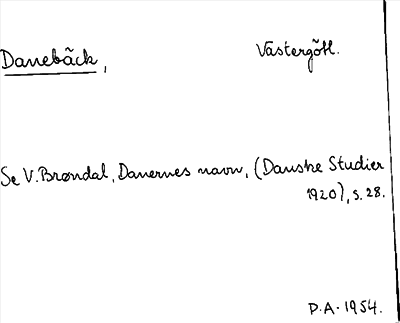 Danebäck, Västergötl.
Se V. Brøndal, Danernes navn, (Danske Studier
1920), s. 28.
D.A. 1954.